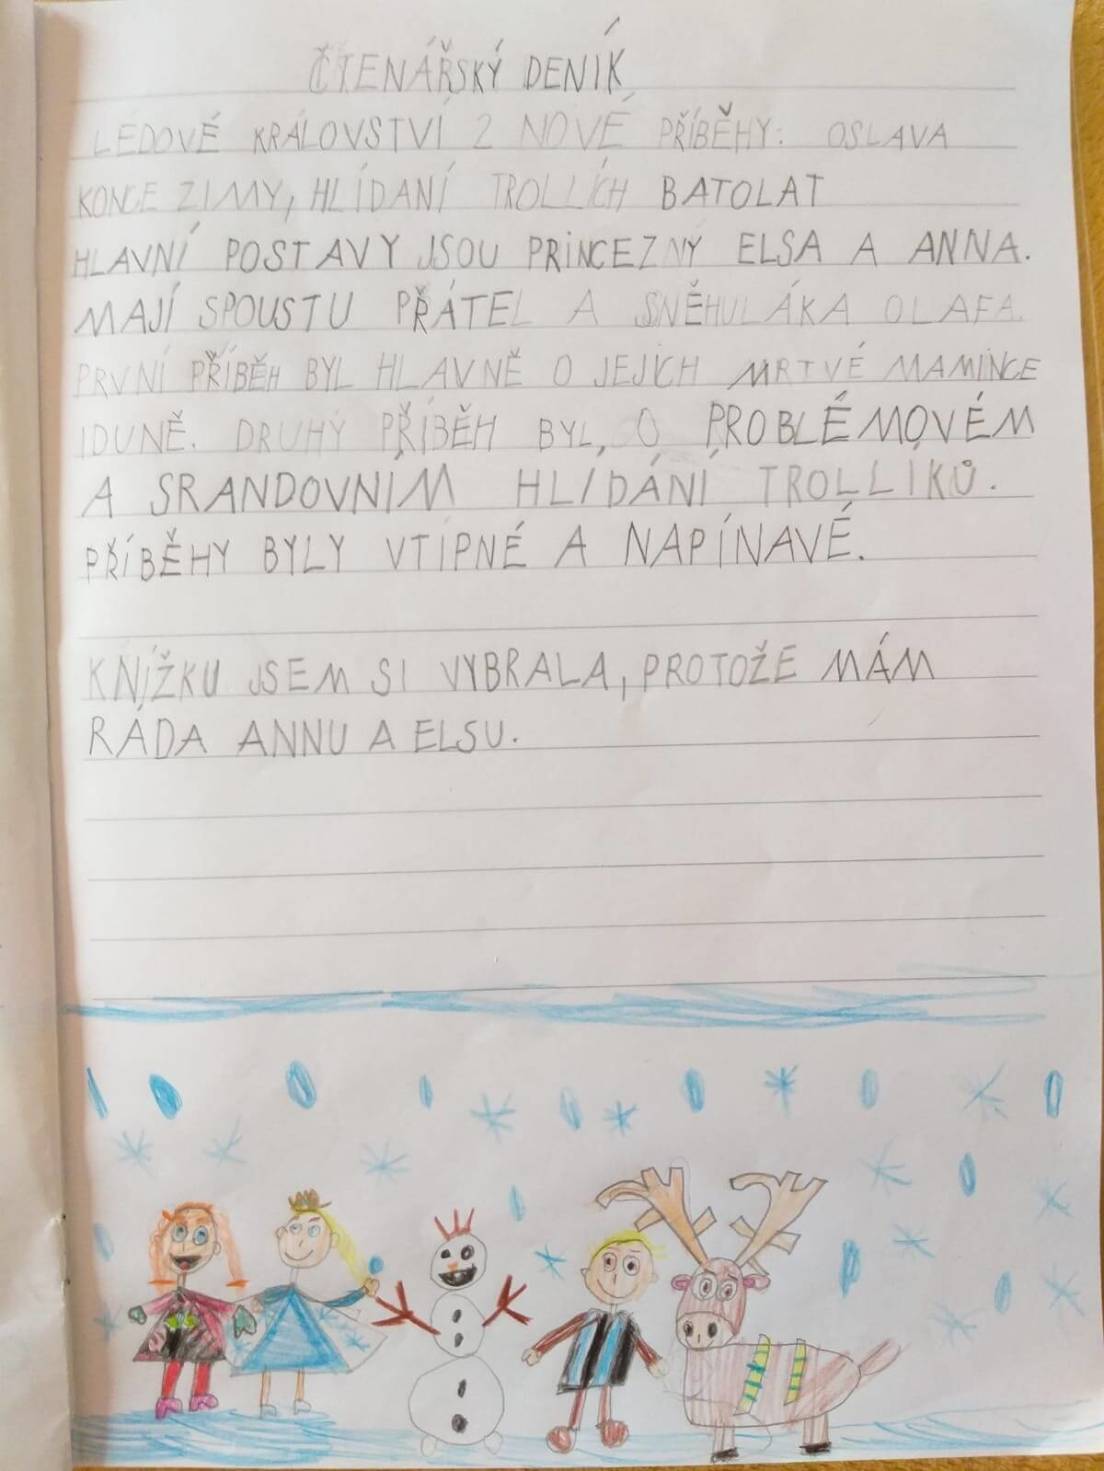 ČTENÁŘSKÝ DENÍK
LEDOVÉ KRÁLOVSTVÍ 2 NOVÉ PŘÍBĚHY: OSLAVA
KONCE ZIMY, HLÍDANÍ TROLLÍCH BATOLAT
HLAVNÍ POSTAVY JSOU PRINCEZNY ELSA A ANNA.
MAJÍ SPOUSTU PŘÁTEL A SNĚHULÁKA OLAFA.
PRVNÍ PŘÍBĚH BYL HLAVNĚ O JEJICH MRTVÉ MAMINCE
IDUNĚ. DRUHÝ PŘÍBĚH BYL, O PROBLÉMOVÉM
A SRANDOVNÍM HLÍDÁNÍ TROLLÍKŮ.
PŘÍBĚHY BYLY VTIPNÉ A NAPÍNAVÉ.
KNÍŽKU JSEM SI VYBRALA, PROTOŽE MÁM
RÁDA ANNU A ELSU.